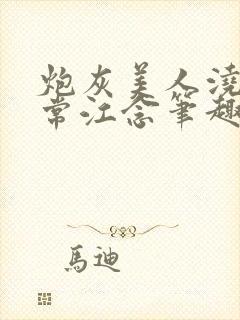 炮灰美人澆
常江念筆趣
馬迪